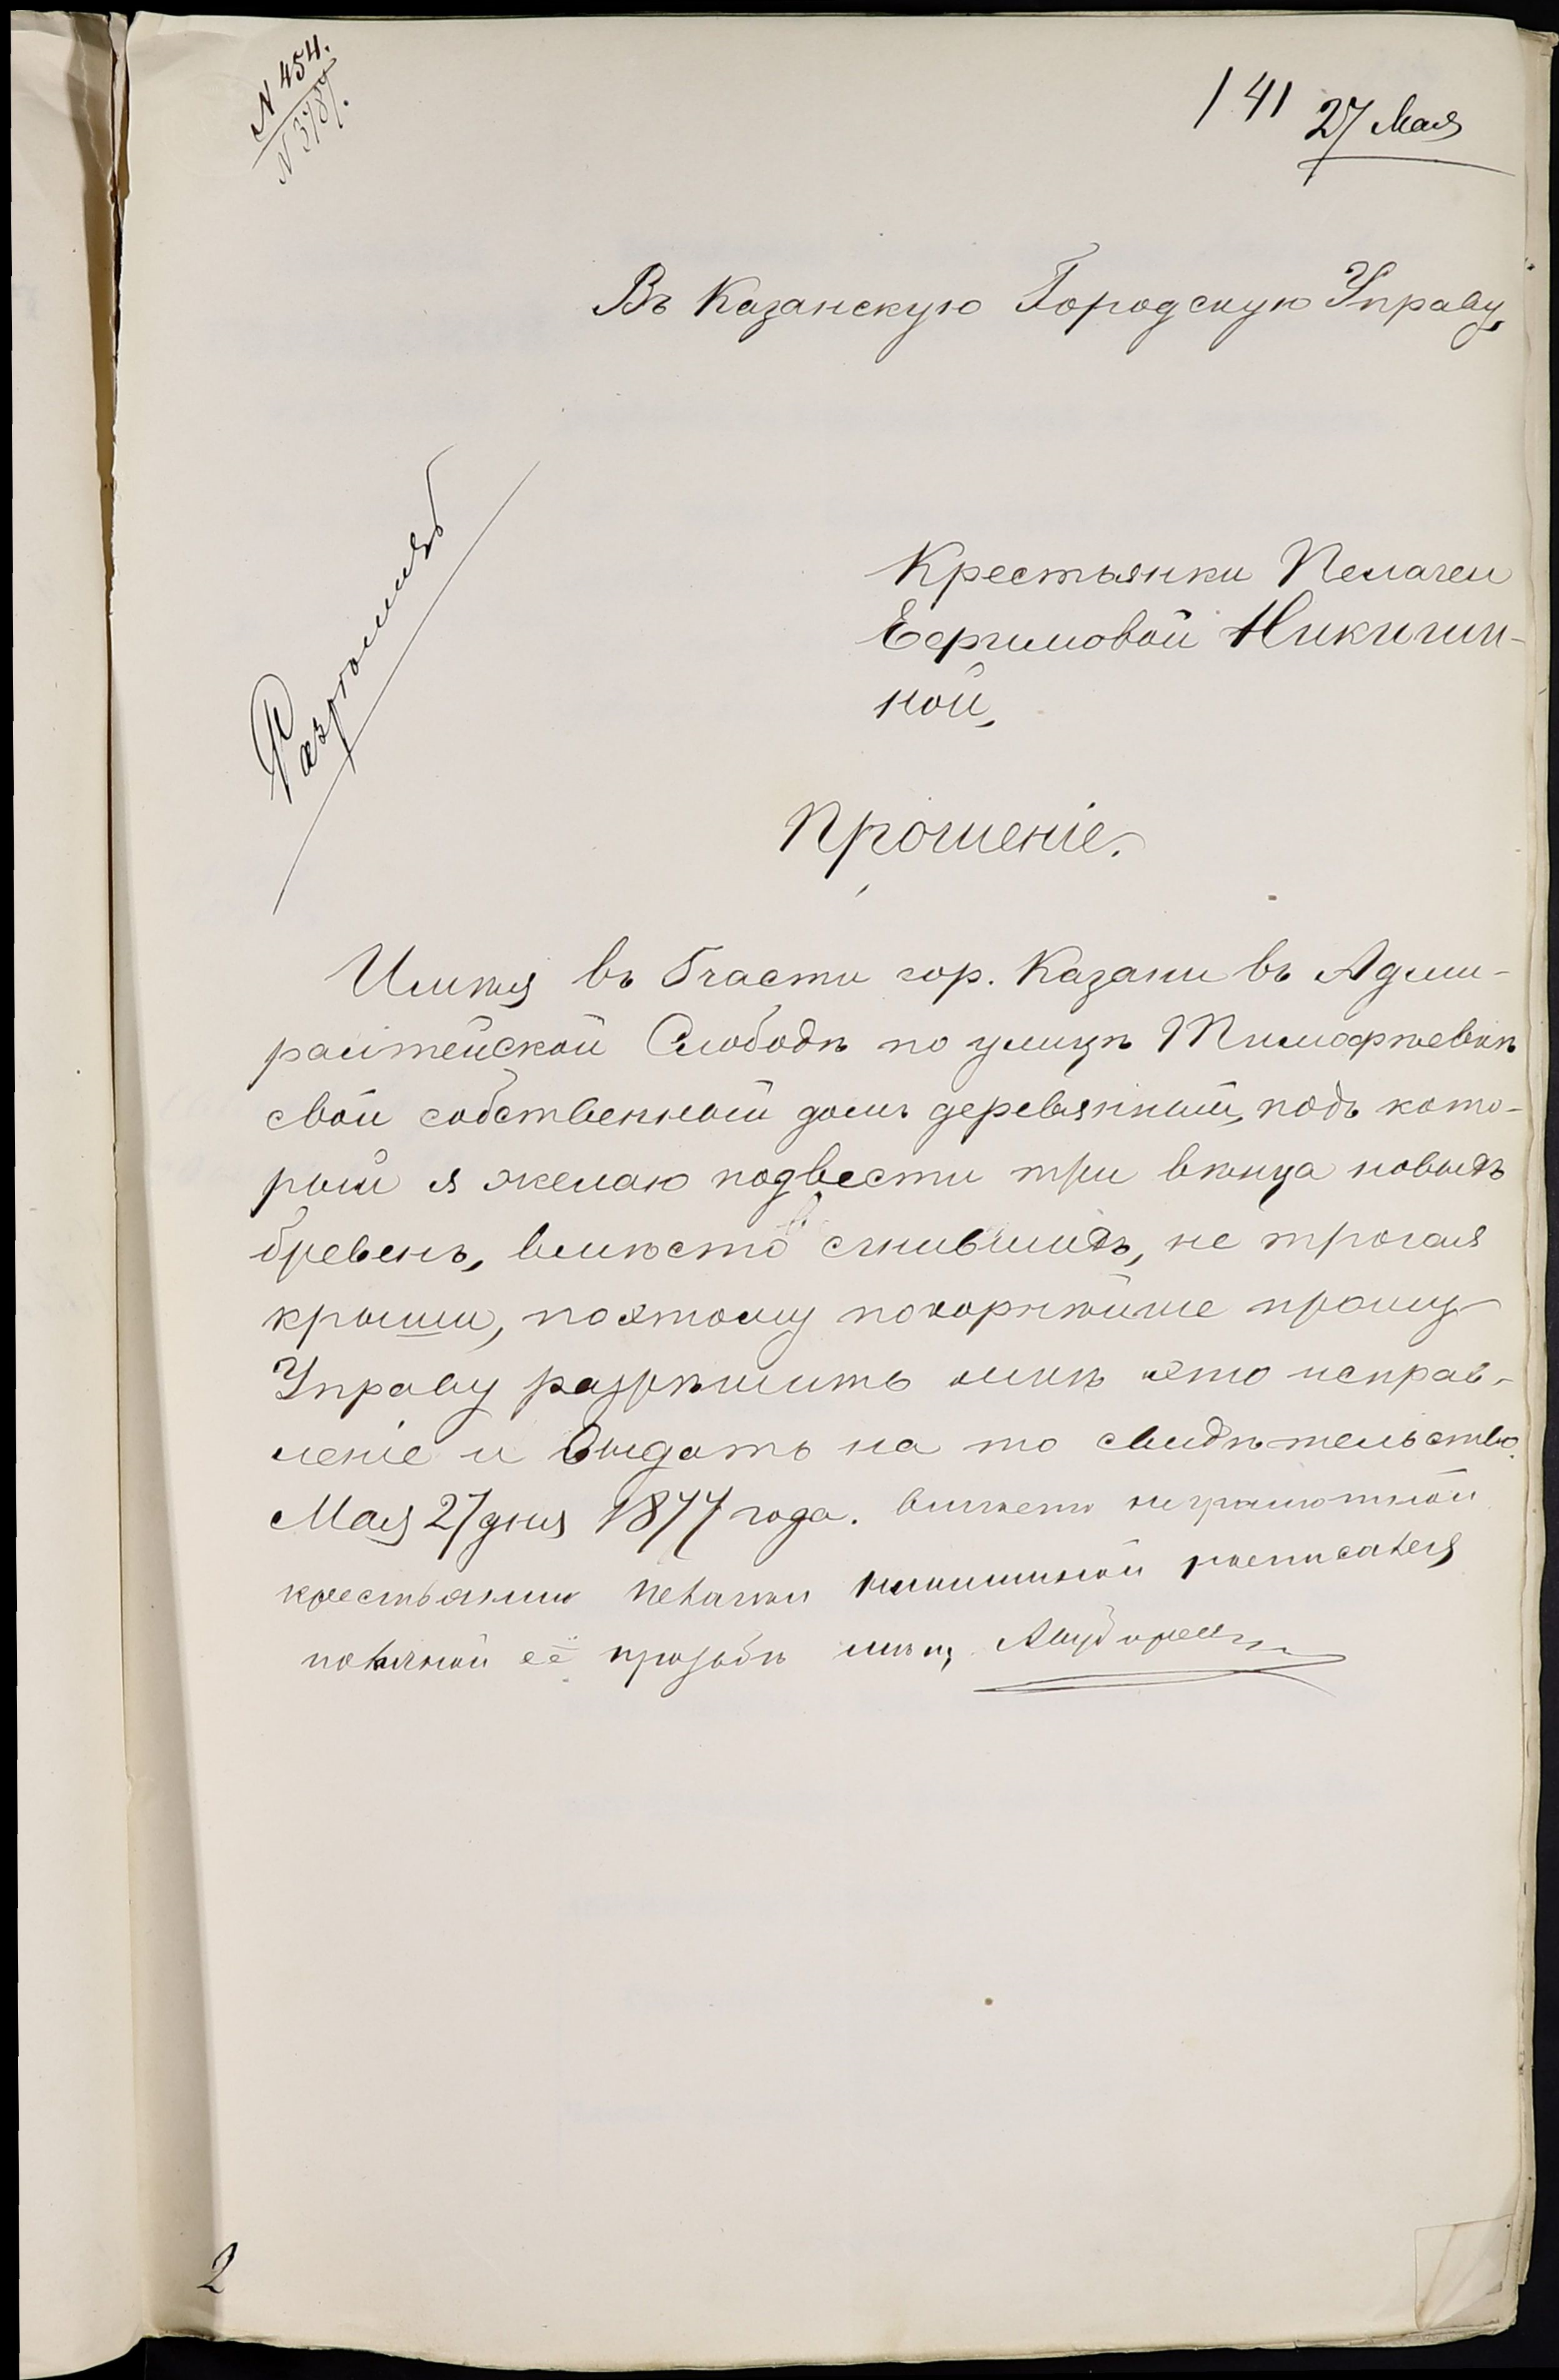 N 454.
N 3787.
141
27 Мая
Въ Казанскую Городскую Управу,
Разрѣшить
Крестьянки Пелагеи
Ефимовой Никити-
ной,
Прошеніе.
Имѣя въ 6 части гор. Казани въ Адми-
ралтейской Слободѣ по улицѣ Тимофѣевкѣ
свой собственный домъ деревянный, подъ кото-
рый я желаю подвести три вѣнца новыхъ
бревенъ, вмѣсто сгнившихъ, не трогая
крыши, поэтому покорнѣйше прошу
Управу разрѣшить мнѣ это исправ-
леніе и выдать на то свидѣтельство.
Мая 27 дня 1877 года. вмѣсто неграмотной
крестьянки Пелагеи Никитиной росписался
по личной её прозьбѣ мѣщ.
2